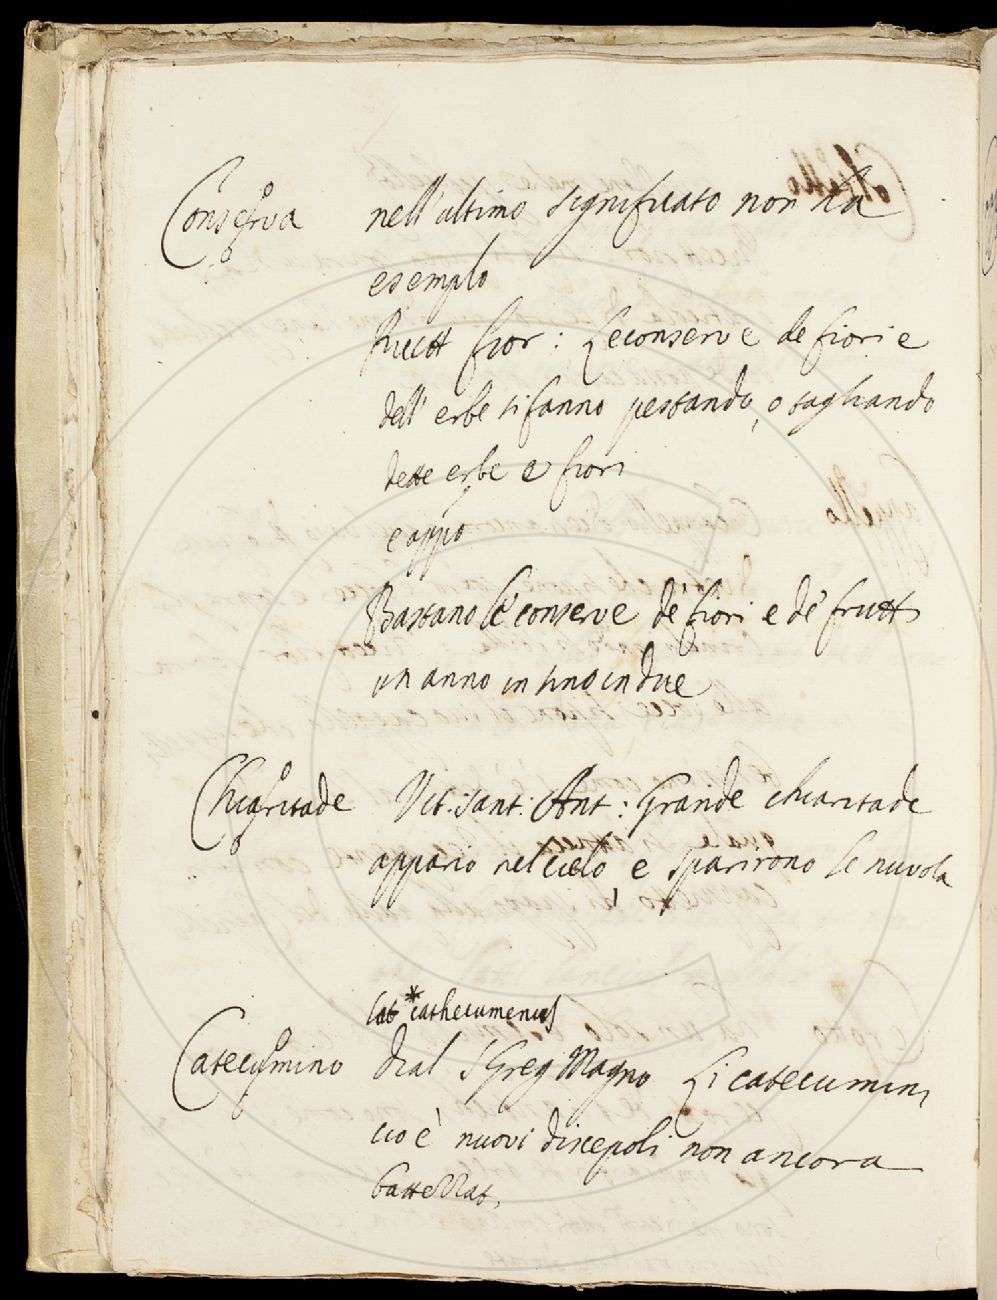 Conserva nell'ultimo significato non ha
esemplo
Ricett fior: Le conserve de fiori e
dell' erbe si fanno pestando, o tagliando
dette erbe e fiori
e appo
Bastano le conserve de' fiori e de' frutti
un anno in sino in due
Chiaritade Vit: sant: Ant: Grande chiaritade
appario nel cielo, e sparirono le nuvola
lat * cathecumenus
Catecumino Dial S Greg Magno Li catecumini
cio è nuovi discepoli non ancora
battezzati